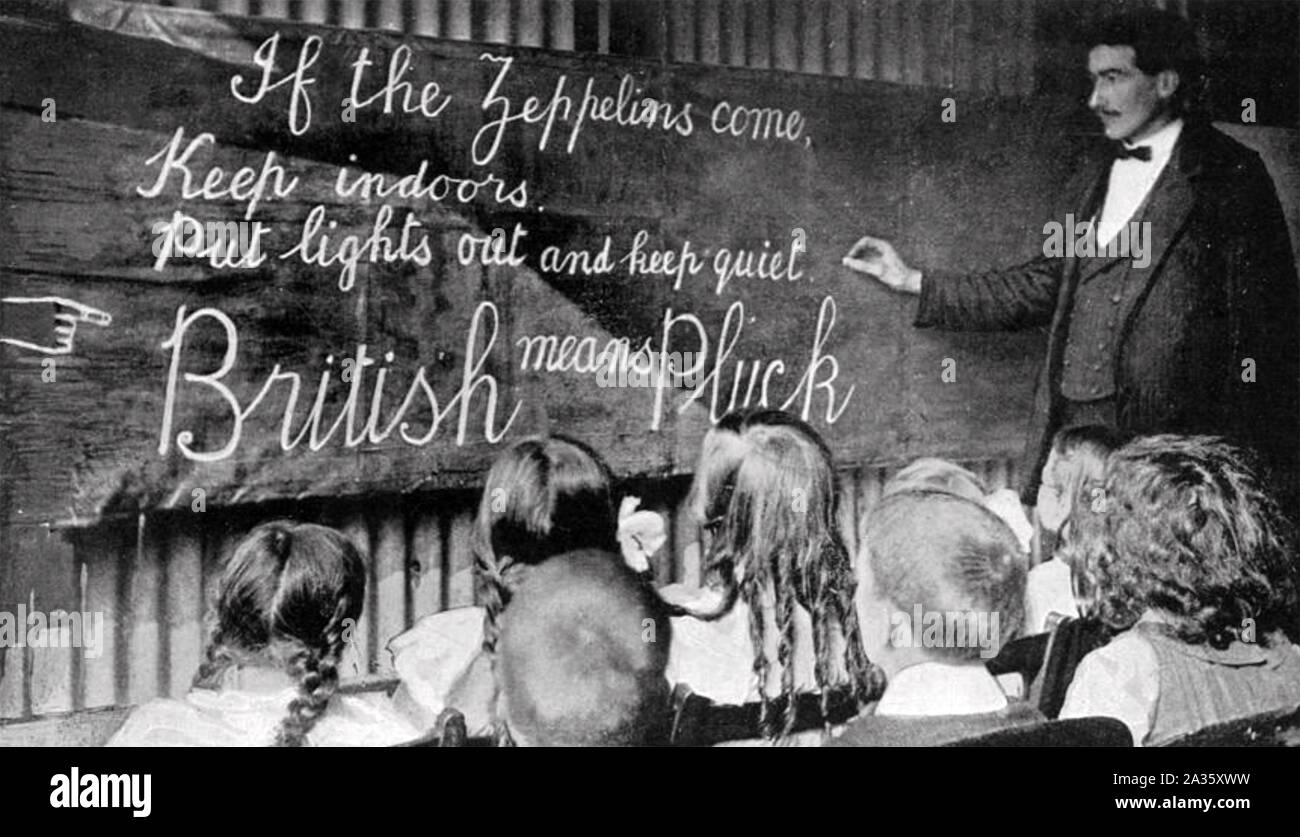 If the Zeppelins come,
Keep indoors.
Put lights out and keep quiet.
British means Pluck
alamy
alamy
alamy
alamy
alamy
alamy
alamy
Image ID: A35XWW
www.alamy.com